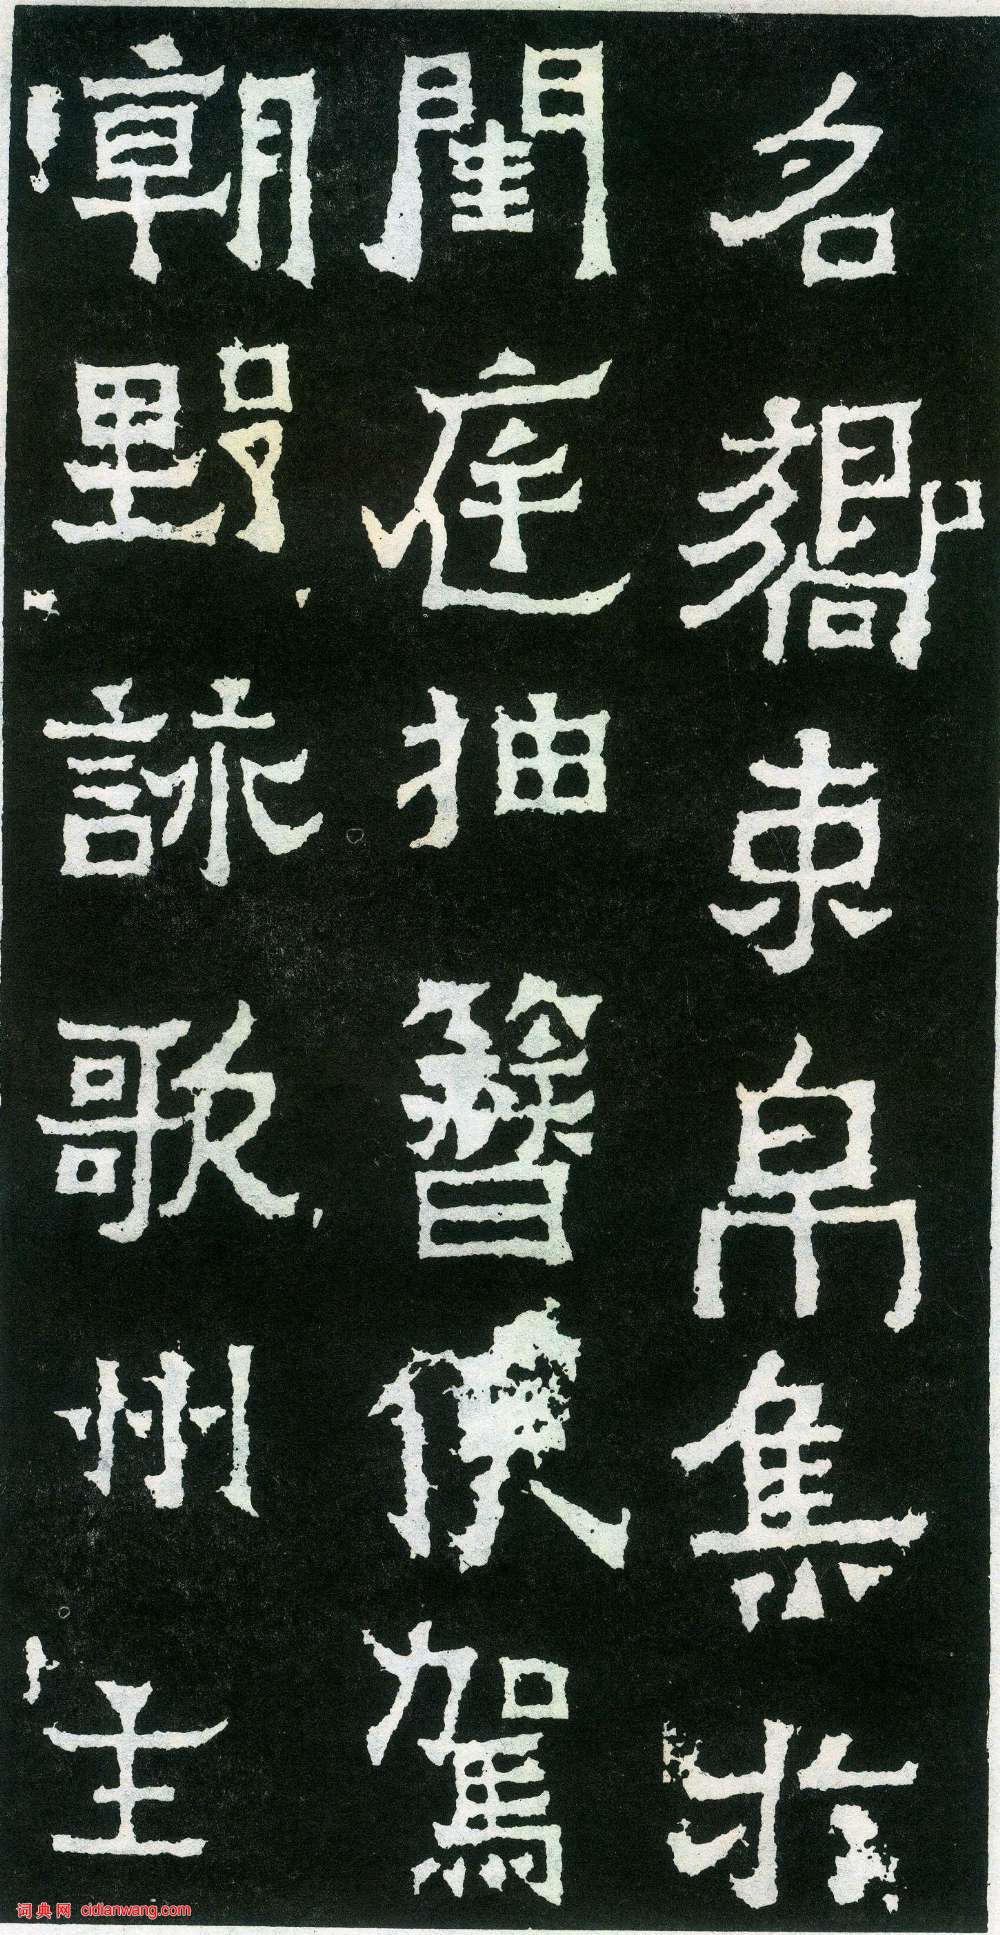 名嚮束帛集於
閨庭抽簪俟駕
朝野詠歌州主
词典网 cidianwang.com